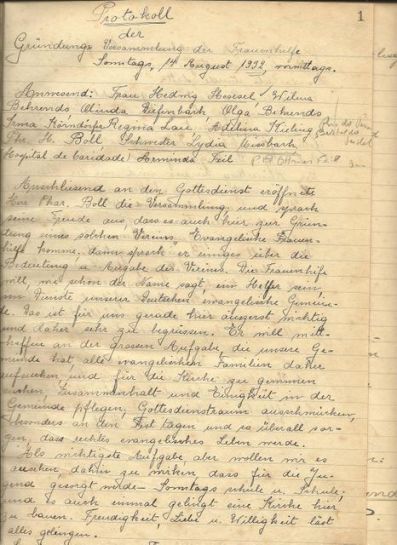 1
Protokoll
der
Gründungs Versammlung der Frauenhilfe
Sonntags, 14 August 1932, vormittags.
Anwesend: Frau Hedwig Wilma
Behrends Olinda Tiefenbach Olga Behrends
Irma Körndörfer Regina Laui
Phr. H. Boll. Schweder Lydia
Hospital de Caridade Herminda Feil
Anschliessend an den Gottesdienst eröffnete
Herr Phar. Boll die Versammlung und sprach
seine Freude aus, dass es auch hier zur Grün-
dung eines solchen Vereins Evangelische Frauen-
hilfe komme, dann sprach er einiges über die
Bedeutung u. Ausgabe des Vereins. Die Frauenhilfe
will, wie schon der Name sagt, ein Helfer sein
im Dienste unserer Deutschen evangelische Gemein-
de. Das ist für uns gerade hier äusserst wichtig
und daher sehr zu begrüssen. Er will mit-
helfen an der grosen Aufgabe, die unsere Ge-
meinde hat, alle evangelischen Familien daher
aufsuchen, und für die Kirche zu gewinnen
suchen, Zusammenhalt und Einigkeit in der
Gemeinde pflegen, Gottesdienstraum ausschmücken,
besonders an den Fest tagen und so überall sor-
gen, dass rechtes evangelisches Leben werde.
Als wichtigste Aufgabe, aber wollen wir es
ansehen, dahin zu wirken, dass für die Ju-
gend gesorgt werde - Sonntags schule u. Schule,
und es auch einmal gelingt eine Kirche hier
zu bauen. Freudigkeit, Liebe u. Willigkeit läst
alles gelingen.